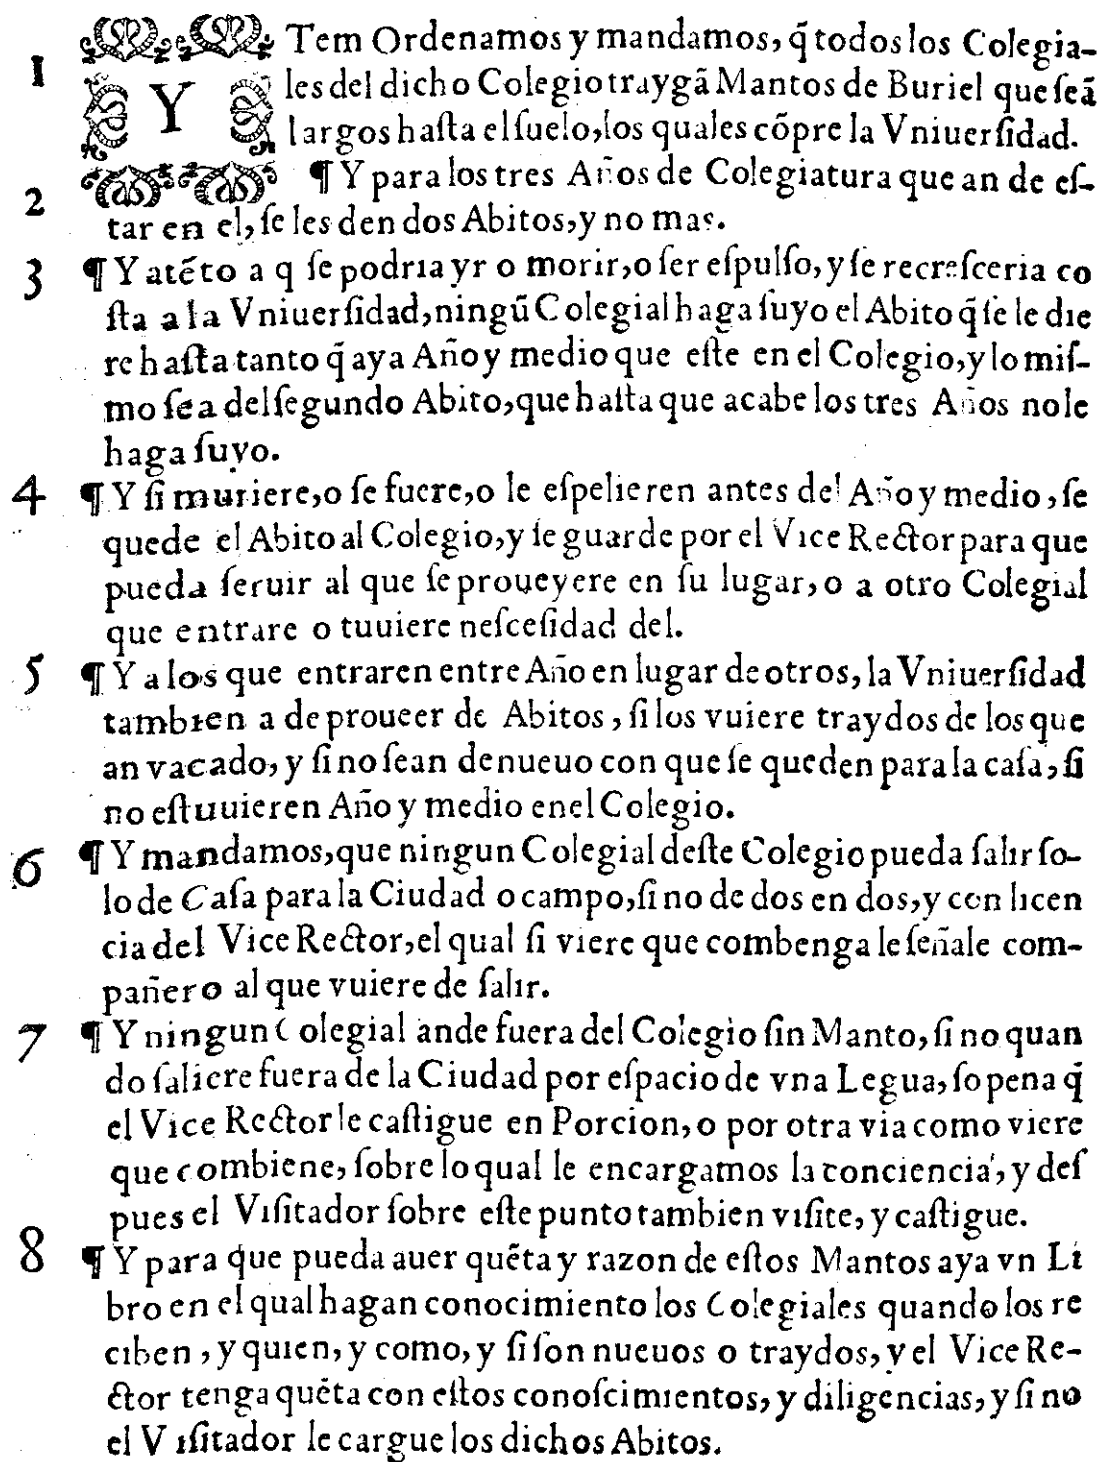 1 YTem Ordenamos y mandamos, q̃ todos los Colegia-
les del dicho Colegio traygã Mantos de Buriel que ſeã
largos haſta el ſuelo, los quales cõpre la Vniuerſidad.
2 ¶ Y para los tres Años de Colegiatura que an de eſ-
tar en el, ſe les den dos Abitos, y no mas.
3 ¶ Y atẽto a q ſe podria yr o morir, o ſer eſpulſo, y ſe recreſceria co
ſta a la Vniuerſidad, ningũ Colegial haga ſuyo el Abito q̃ ſe le die
re haſta tanto q̃ aya Año y medio que eſte en el Colegio, y lo miſ-
mo ſea del ſegundo Abito, que haſta que acabe los tres Años no le
haga ſuyo.
4 ¶ Y ſi muriere, o ſe fuere, o le eſpelieren antes del Año y medio, ſe
quede el Abito al Colegio, y ſe guarde por el Vice Rector para que
pueda ſeruir al que ſe proueyere en ſu lugar, o a otro Colegial
que entrare o tuuiere neſceſidad del.
5 ¶ Y a los que entraren entre Año en lugar de otros, la Vniuerſidad
tambien a de proueer de Abitos, ſi los vuiere traydos de los que
an vacado, y ſi no ſean de nueuo con que ſe queden para la caſa, ſi
no eſtuuieren Año y medio enel Colegio.
6 ¶ Y mandamos, que ningun Colegial deſte Colegio pueda ſalir ſo-
lo de Caſa para la Ciudad o campo, ſi no de dos en dos, y con licen
cia del Vice Rector, el qual ſi viere que combenga le ſeñale com-
pañero al que vuiere de ſalir.
7 ¶ Y ningun Colegial ande fuera del Colegio ſin Manto, ſi no quan
do ſaliere fuera de la Ciudad por eſpacio de vna Legua, ſo pena q̃
el Vice Rector le caſtigue en Porcion, o por otra via como viere
que combiene, ſobre lo qual le encargamos la conciencia, y deſ
pues el Viſitador ſobre eſte punto tambien viſite, y caſtigue.
8 ¶ Y para que pueda auer quẽta y razon de eſtos Mantos aya vn Li
bro en el qual hagan conocimiento los Colegiales quando los re
ciben, y quien, y como, y ſi ſon nueuos o traydos, y el Vice Re-
ctor tenga quẽta con eſtos conoſcimientos, y diligencias, y ſi no
el Viſitador le cargue los dichos Abitos.